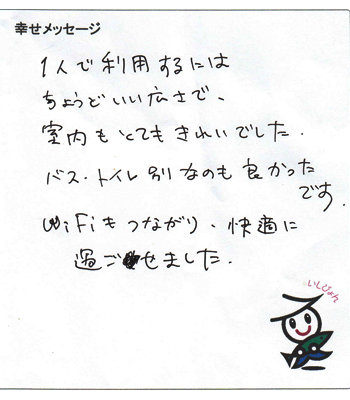 幸せメッセージ
1人で利用するには
ちょうどいい広さで、
室内もとてもきれいでした.
バス・トイレ別なのも良かった
です.
WiFiもつながり、快適に
過ごせました.
いしぴょん